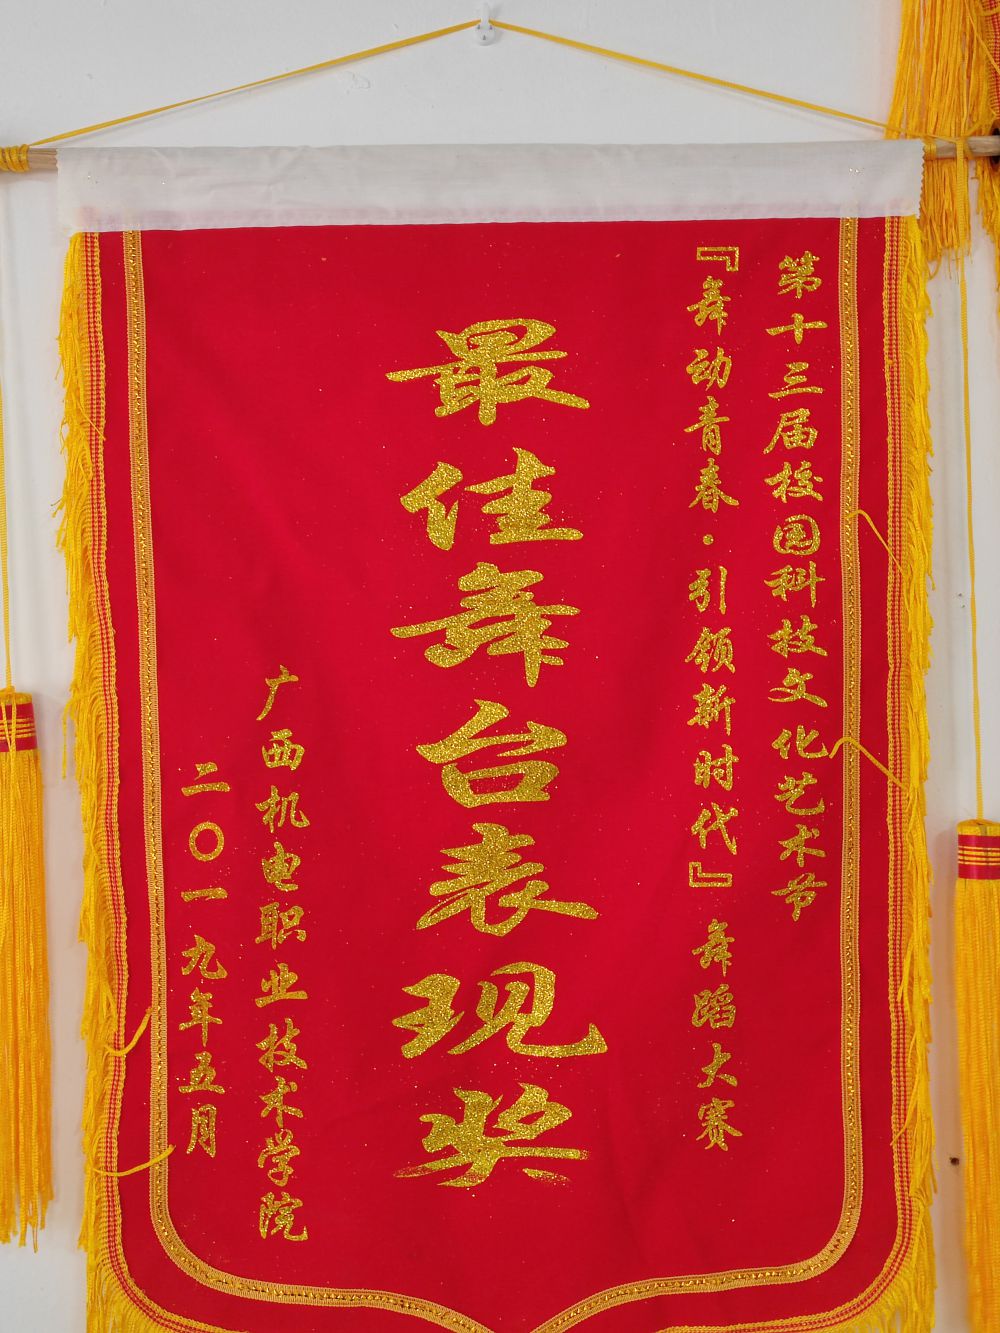 第十三届校园科技文化艺术节
『舞动青春·引领新时代』舞蹈大赛
最佳舞台表现奖
广西机电职业技术学院
二〇一九年五月